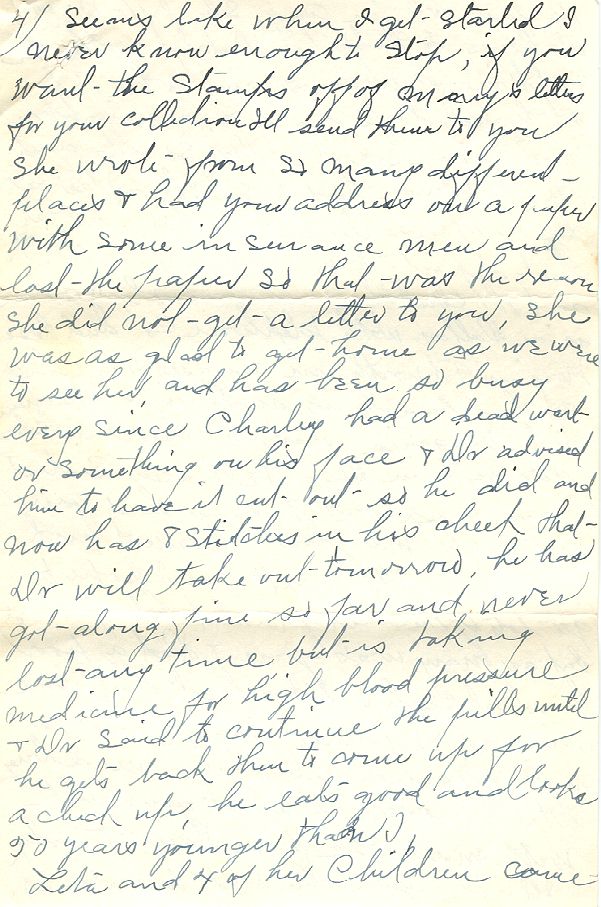 4/ Seems like when I get started I
never know enough to stop, if you
want the stamps off of Mary's letters
for your collection I'll send them to you
She wrote from so many different
places & had your address on a paper
with some insurance men and
lost the paper so that was the reason
she did not get a letter to you, she
was as glad to get home as we were
to see her, and has been so busy
every since Charley had a seed wart
or something on his face & Dr advised
him to have it cut out so he did and
now has 8 stitches in his cheek that
Dr will take out tomorrow, he has
got along fine so far and never
lost any time but is taking
medicine for high blood pressure
& Dr said to continue the pills until
he gets back then to come up for
a check up, he eats good and looks
50 years younger than I,
Leta and 4 of her Children come